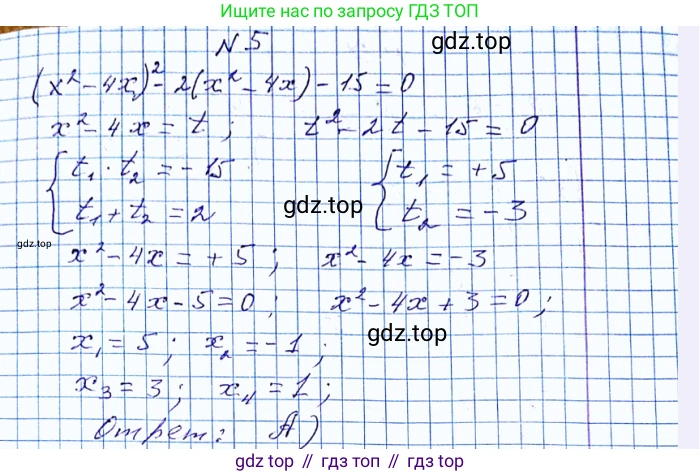 Ищите нас по запросу ГДЗ ТОП
N 5
гдз.top
(x² - 4x)² - 2(x² - 4x) - 15 = 0
x² - 4x = t; t² - 2t - 15 = 0
{ t₁ · t₂ = -15 { t₁ = +5
t₁ + t₂ = 2 гдз.top t₂ = -3
гдз.top
x² - 4x = +5; x² - 4x = -3
x² - 4x - 5 = 0; x² - 4x + 3 = 0;
гдз.top
x₁ = 5; x₂ = -1;
x₃ = 3; x₄ = 1;
Ответ: А)
gdz.top // гдз.топ // гдз.top